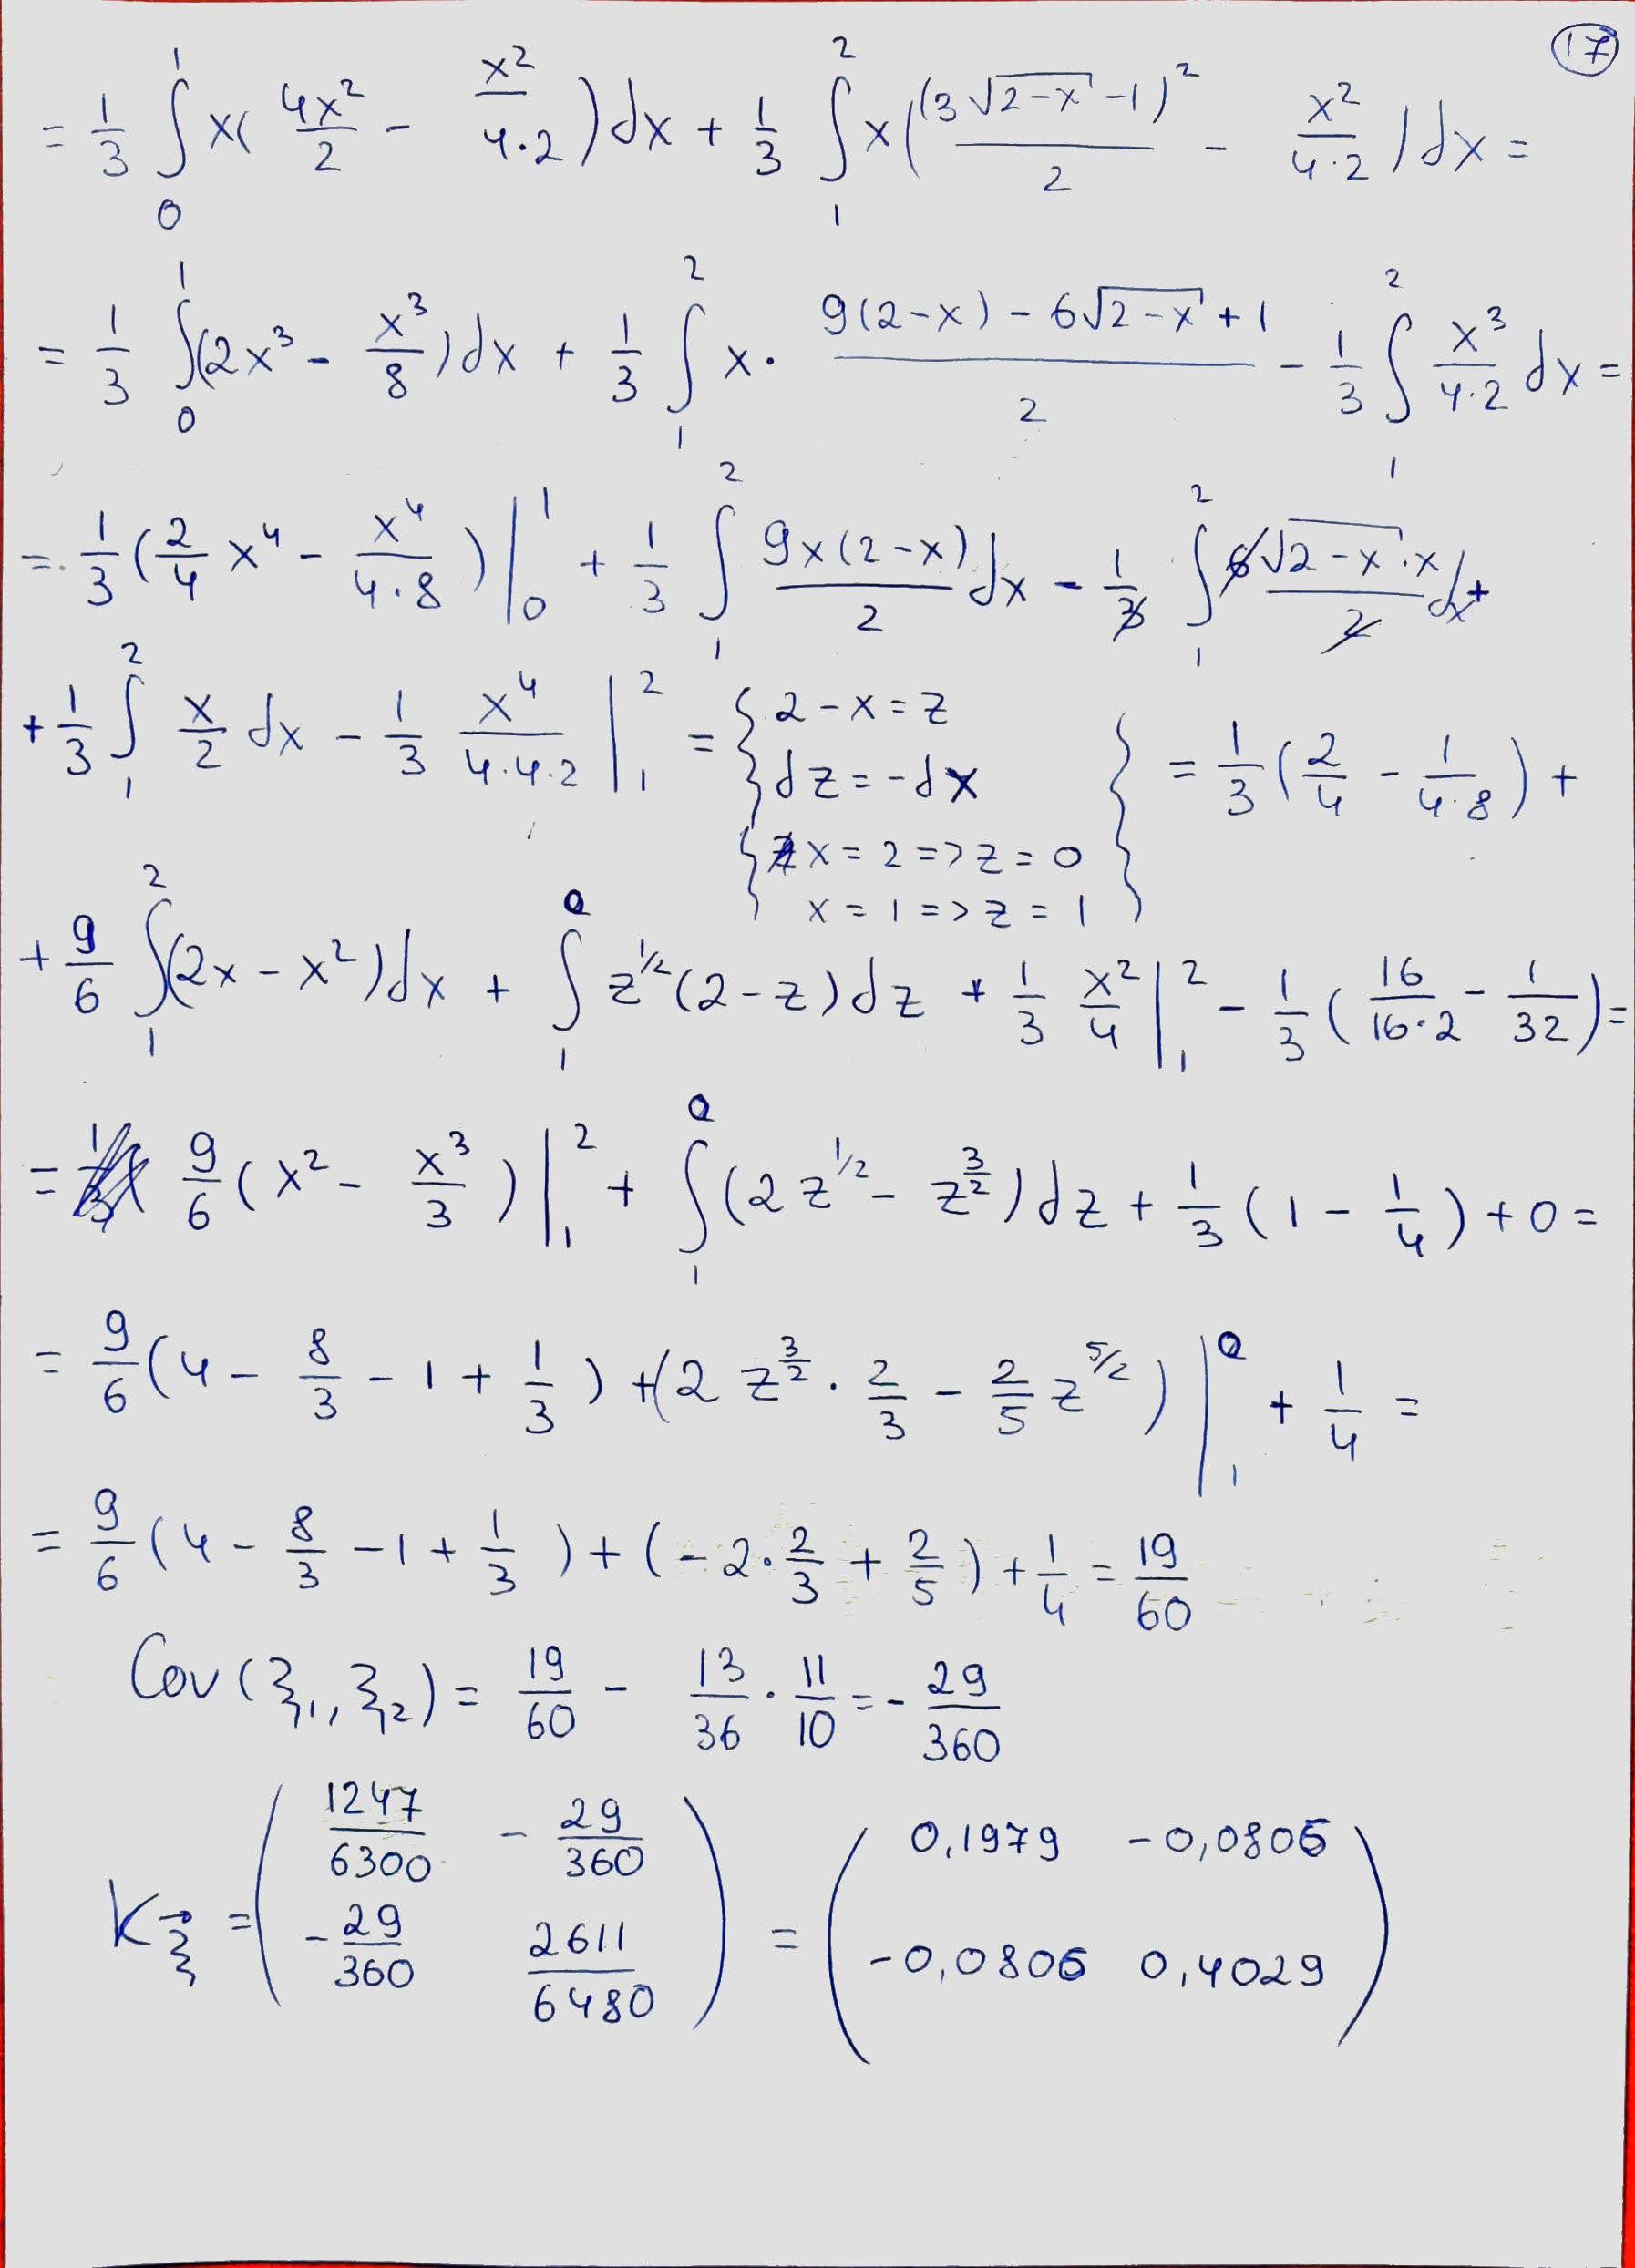 17
= 1/3 ∫₀¹ x( 4x²/2 - x²/(4·2) ) dx + 1/3 ∫₁² x( (3√(2-x) -1)²/2 - x²/(4·2) ) dx =
= 1/3 ∫₀¹ (2x³ - x³/8) dx + 1/3 ∫₁² x · (9(2-x) - 6√(2-x) + 1)/2 - 1/3 ∫₁² x³/(4·2) dx =
= 1/3 ( 2/4 x⁴ - x⁴/(4·8) ) |₀¹ + 1/3 ∫₁² 9x(2-x)/2 dx - 1/3 ∫₁² 6√(2-x)·x/2 dx +
+ 1/3 ∫₁² x/2 dx - 1/3 x⁴/(4·4·2) |₁² = { 2-x=z } = 1/3 ( 2/4 - 1/(4·8) ) +
dz = -dx
x = 2 => z = 0
x = 1 => z = 1
+ 9/6 ∫₁² (2x - x²) dx + ∫₁⁰ z^(1/2) (2-z) dz + 1/3 x²/4 |₁² - 1/3 ( 16/(16·2) - 1/32 ) =
= 9/6 ( x² - x³/3 ) |₁² + ∫₁⁰ (2z^(1/2) - z^(3/2)) dz + 1/3 ( 1 - 1/4 ) + 0 =
= 9/6 ( 4 - 8/3 - 1 + 1/3 ) + ( 2 z^(3/2) · 2/3 - 2/5 z^(5/2) ) |₁⁰ + 1/4 =
= 9/6 ( 4 - 8/3 - 1 + 1/3 ) + ( - 2 · 2/3 + 2/5 ) + 1/4 = 19/60
Cov (ξ₁, ξ₂) = 19/60 - 13/36 · 11/10 = - 29/360
K_ξ⃗ = ( 1247/6300 - 29/360 ) = ( 0,1979 -0,0806 )
( - 29/360 2611/6480 ) ( -0,0806 0,4029 )